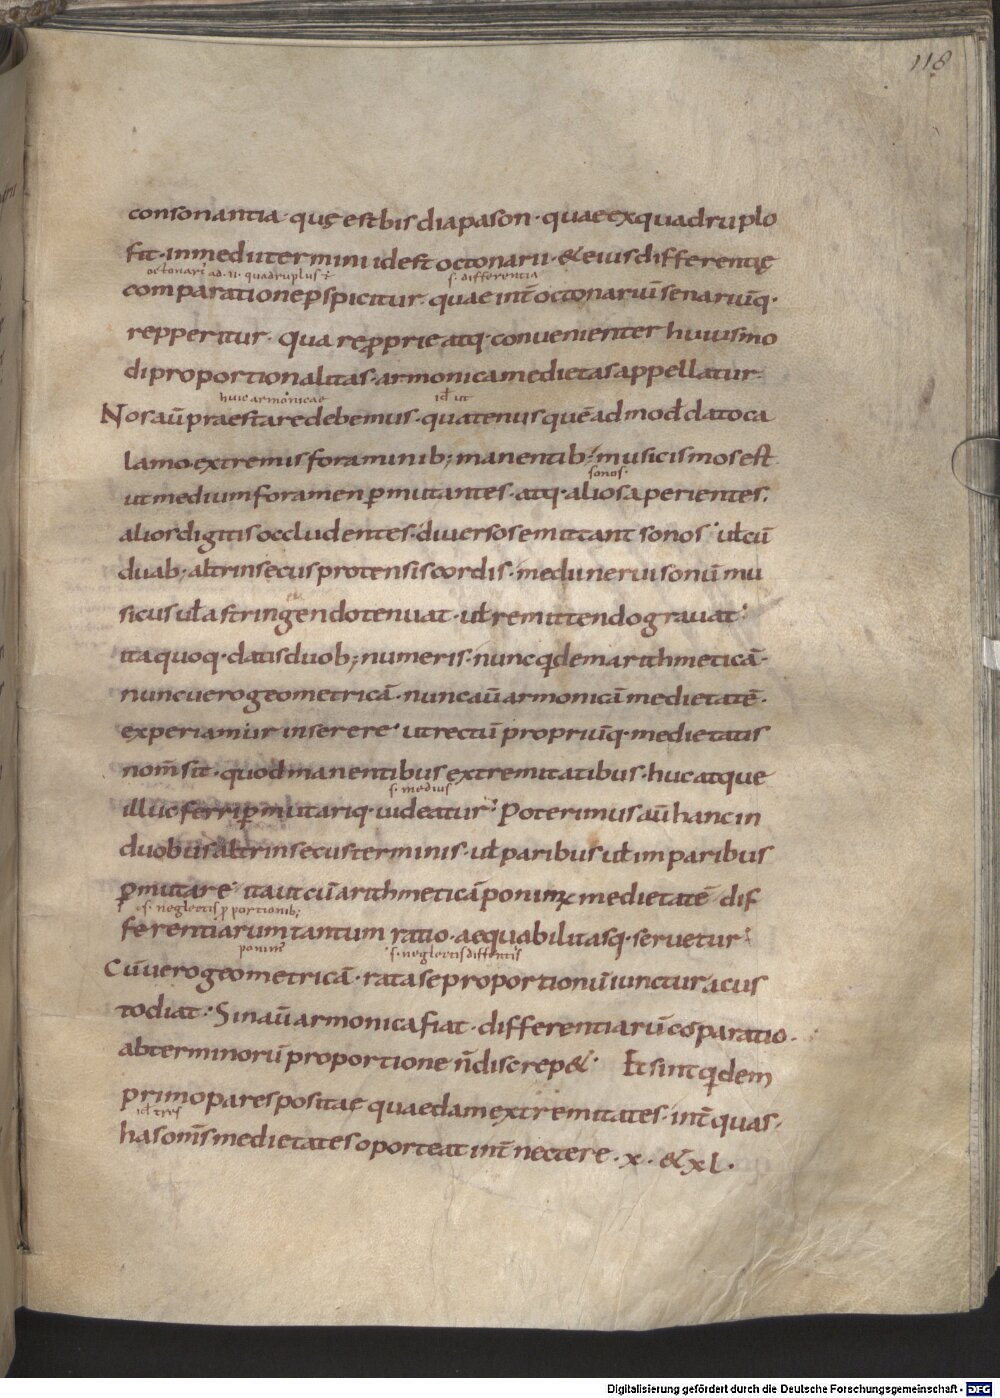 118
consonantia· quę est bis diapason· quae ex quadruplo
fit· in medii termini id est octonarii· & eius differentię
octonari ad·ii· quadruplus ē
s· differentia
comparatione pspicitur· quae int̄ octonariū senariūq·
repperitur· Qua re pprie atq· conuenienter huiusmo
di proportionalitas· armonica medietas appellatur·
huic armonicae
id ut
Nos aū praestare debemus· quatenus quē ad mod̄ dato ca
lamo extremis foraminib; manentib; musicis mos est
sonos·
ut medium foramen pmutantes· atq· alios aperientes·
alios digitis occludentes· diuersos emittant sonos· uł cū
duab; altrinsecus protensis cordis· medii nerui sonū mu
sicus uł astringendo tenuat· uł remittendo grauat·
ita quoq· datis duob; numeris· nunc qdem arithmeticā·
nunc uero geometricā· nunc aū armonicā medietatē·
experiamur inserere· ut rectū propriūq· medietatis
nom̄ sit· quod manentibus extremitatibus· huc atque
s· medius
illuc ferri pmutariq· uideatur· Poterimus aū hanc in
duobus altrinsecus terminis· uł paribus uł imparibus
pmutare· ita ut cū arithmeticā ponim; medietatē· dif
s· neglectis pportionib;
ferentiarum tantum ratio· aequabilitasq· seruetur·
ponim̄
s· neglectis differentiis
Cū uero geometricā· rata se proportionū iunctura cus
todiat· Sin aū armonica fiat· differentiarū cōparatio·
ab terminorū proportione n̄ discrep&· Et sint qdem
primo pares positae quaedam extremitates· int̄ quas·
id tres
has om̄s medietates oporteat int̄nectere· x· & xl·
Digitalisierung gefördert durch die Deutsche Forschungsgemeinschaft - DFG